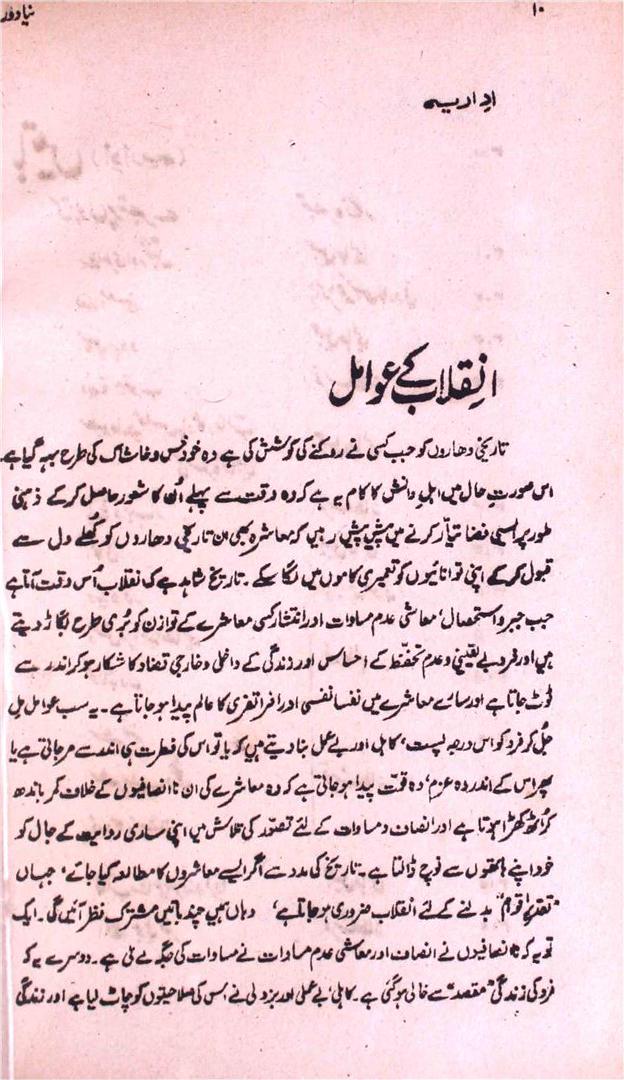 ۱۰ نیا دور
اداریہ
انقلاب کے عوامل
تاریخی دھاروں کو جب کسی نے روکنے کی کوشش کی ہے وہ خود خس و خاشاک کی طرح بہہ گیا ہے۔
اس صورتِ حال میں اہلِ دانش کا کام یہ ہے کہ وہ وقت سے پہلے اُن کا شعور حاصل کر کے ذہنی
طور پر ایسی فضا تیار کرنے میں پیش پیش رہیں کہ معاشرہ بھی ان تاریخی دھاروں کو کھلے دل سے
قبول کر کے اپنی توانائیوں کو تعمیری کاموں میں لگا سکے۔ تاریخ شاہد ہے کہ انقلاب اُس وقت آتا ہے
جب جبر و استحصال، معاشی عدم مساوات اور انتشار کسی معاشرے کے توازن کو بُری طرح بگاڑ دیتے
ہیں اور فرد بے یقینی و عدم تحفظ کے احساس اور زندگی کے داخلی و خارجی تضاد کا شکار ہو کر اندر سے
ٹوٹ جاتا ہے اور سارے معاشرے میں نفسا نفسی اور افراتفری کا عالم پیدا ہو جاتا ہے۔ یہ سب عوامل مل
جُل کر فرد کو اس درجہ پست، کاہل اور بے عمل بنا دیتے ہیں کہ یا تو اس کی فطرت ہی اندر سے مر جاتی ہے یا
پھر اس کے اندر وہ عزم، وہ قوت پیدا ہو جاتی ہے کہ وہ معاشرے کی ان ناانصافیوں کے خلاف کمر باندھ
کر اُٹھ کھڑا ہوتا ہے اور انصاف و مساوات کے لئے تصوّر کی تلاش میں اپنی ساری روایت کے جال کو
خود اپنے ہاتھوں سے نوچ ڈالتا ہے۔ تاریخ کی مدد سے اگر ایسے معاشروں کا مطالعہ کیا جائے، جہاں
"تقدیرِ اقوام" بدلنے کے لئے انقلاب ضروری ہو جاتا ہے، وہاں ہمیں چند باتیں مشترک نظر آئیں گی۔ ایک
تو یہ کہ ناانصافیوں نے انصاف اور معاشی عدم مساوات نے مساوات کی جگہ لے لی ہے۔ دوسرے یہ کہ
فرد کی زندگی "مقصد" سے خالی ہو گئی ہے۔ کاہلی، بے عملی اور بزدلی نے اس کی صلاحیتوں کو چاٹ لیا ہے اور زندگی